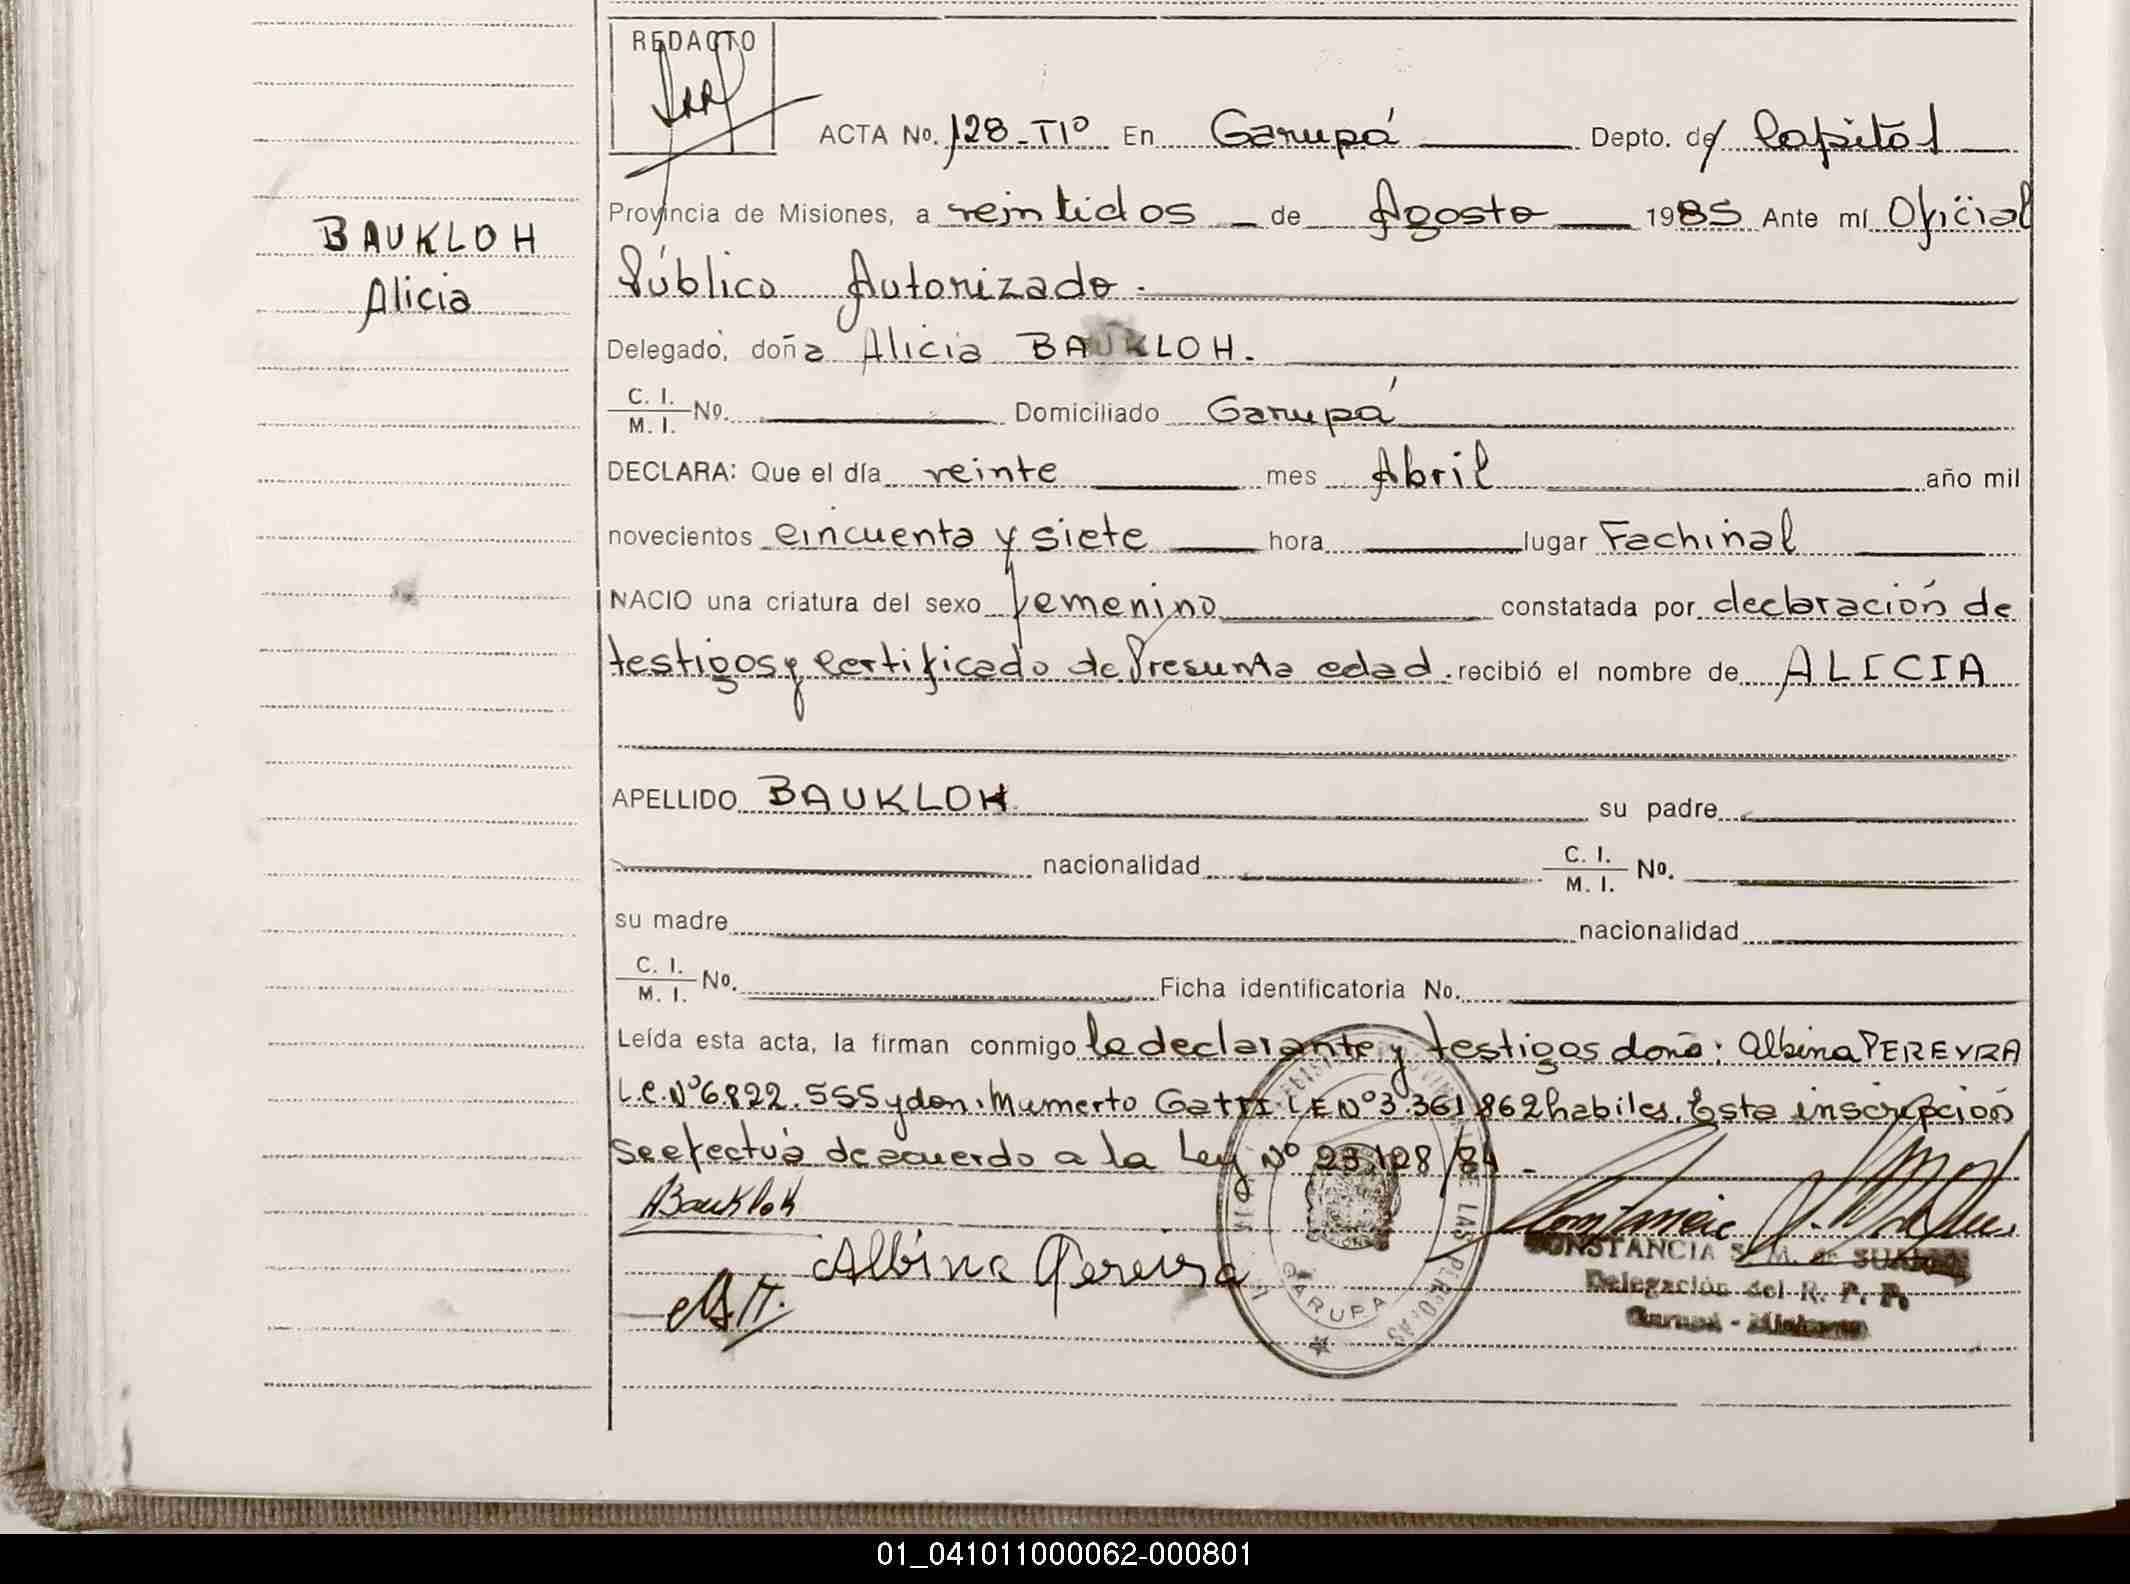 REDACTO
ACTA No. 128-TIº En Garupá Depto. de Capital
BAUKLOH
Alicia
Provincia de Misiones, a veintidos de Agosto 1985 Ante mí Oficial
Público Autorizado.
Delegado, doña Alicia BAUKLOH.
C. I.
M. I. No. Domiciliado Garupá
DECLARA: Que el día veinte mes Abril año mil
novecientos cincuenta y siete hora lugar Fachinal
NACIO una criatura del sexo femenino constatada por declaración de
testigos y Certificado de Presunta edad. recibió el nombre de ALICIA
APELLIDO BAUKLOH su padre
nacionalidad C. I.
M. I. No.
su madre nacionalidad
C. I.
M. I. No. Ficha identificatoria No.
Leída esta acta, la firman conmigo la declarante y testigos doña: Albina PEREYRA
L.C. Nº 6.822.555 y don. Mumerto Gatti LE Nº 3.361.862 habiles. Esta inscripción
se efectuá de acuerdo a la Ley Nº 23.128/84-
ABaukloh
Albina Pereira
CONSTANCIA S. M. de
Delegación del R. P. P.
Garupá - Misiones
DE LAS PERSONAS
GARUPA
01_041011000062-000801